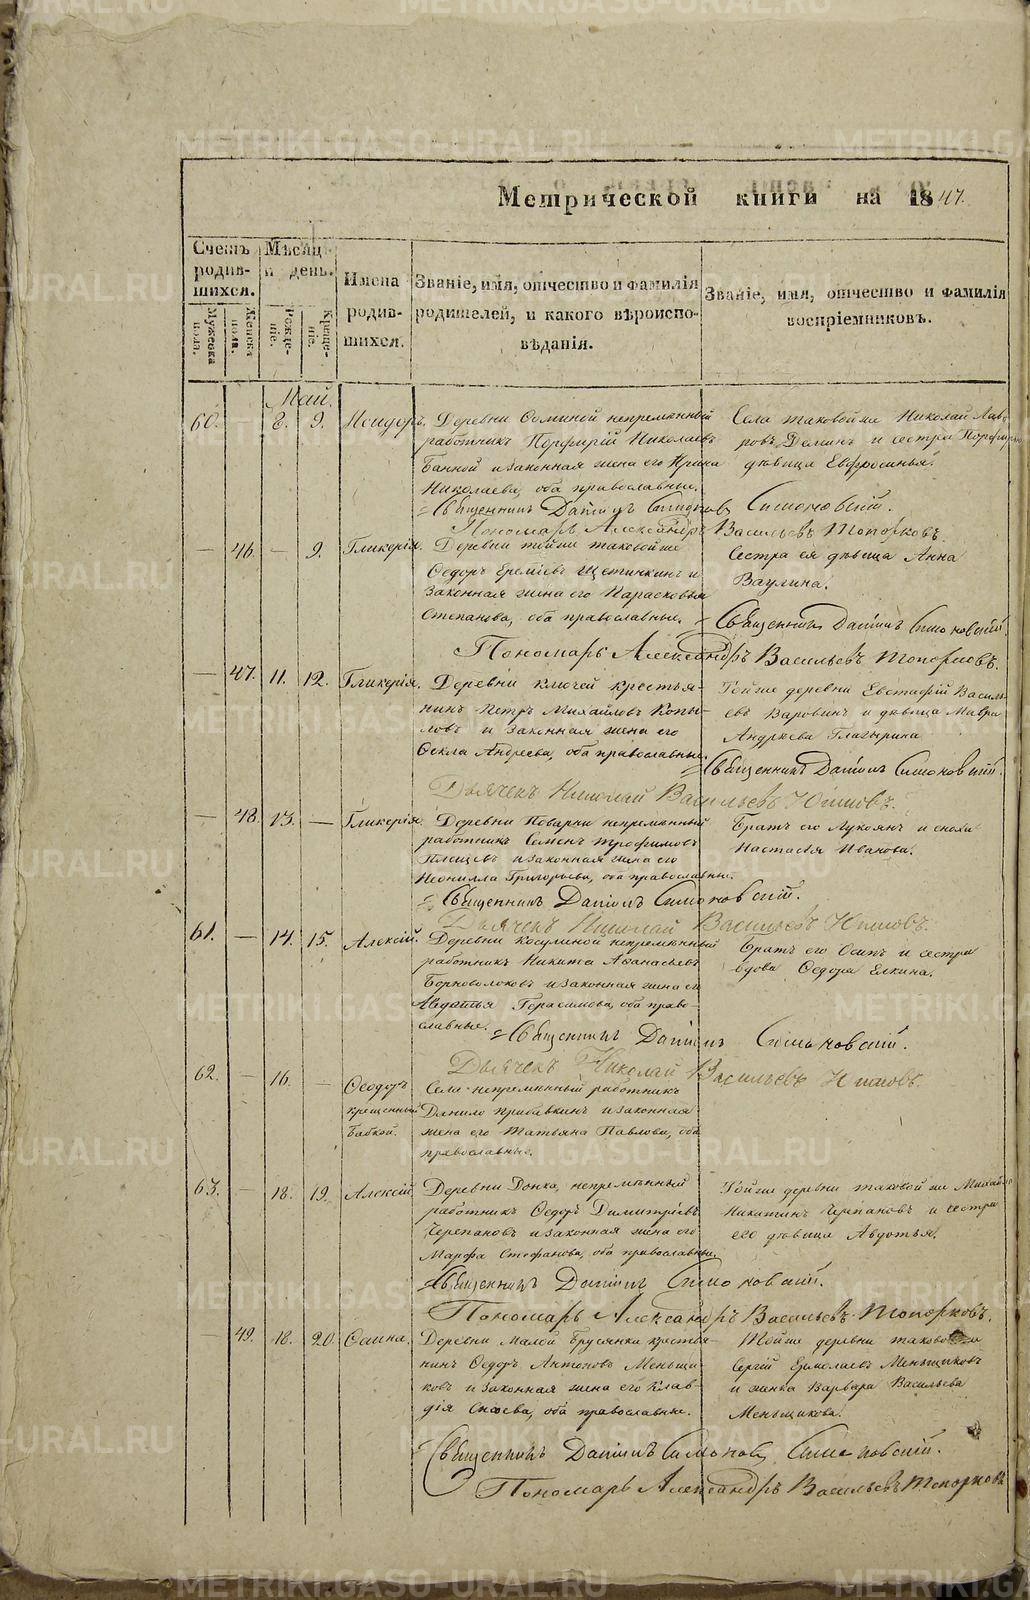 METRIKI.GASO-URAL.RU
Метрической книги на 1847.
Счетъ родив-шихся.
Мѣсяцъ и день.
Имена родив-шихся.
Званіе, имя, отчество и фамилія
родителей, и какого вѣроиспо-
вѣданія.
Званіе, имя, отчество и фамилія
воспріемниковъ.
Мужеска пола.
Женска пола.
Рожде-ніе.
Креще-ніе.
Май.
60. — 8. 9. Исидоръ.
Деревни непремѣнный
работникъ Порфирій Николаевъ
и законная жена его Ирина
Николаева, оба православные.
Села таковой же Николай Лав-
ровъ и сестра
дѣвица Евфросинья.
Священникъ Даніилъ Симоновскій.
Пономарь Александръ Васильевъ Топорковъ.
— 46. — 9. Гликерія.
Деревни тойже таковой же
Ѳедоръ Еремѣевъ Щетинкинъ и
законная жена его Парасковья
Степанова, оба православные.
Сестра ея дѣвица Анна
Ваулина.
Священникъ Даніилъ Симоновскій.
Пономарь Александръ Васильевъ Топорковъ.
— 47. 11. 12. Гликерія.
Деревни Ключей крестья-
нинъ Петръ Михайловъ Копы-
ловъ и законная жена его
Ѳекла Андреева, оба православные.
Тойже деревни Евстафій Василь-
евъ Варовинъ и дѣвица Мавра
Андреева Глазырина
Священникъ Даніилъ Симоновскій.
Дьячекъ Николай Васильевъ
— 48. 13. — Гликерія.
Деревни Поварни непремѣнный
работникъ Семенъ Трофимовъ
Плещевъ и законная жена его
Неонилла Григорьева, оба православные.
Братъ его Лукоянъ и сноха
Настасья Иванова.
Священникъ Даніилъ Симоновскій.
Дьячекъ Николай Васильевъ
61. — 14. 15. Алексій.
Деревни Косулиной непремѣнный
работникъ Никита Аѳанасьевъ
Черноволоковъ и законная жена его
Авдотья Герасимова, оба право-
славные.
Братъ его Осипъ и сестра
вдова Ѳедора Елкина.
Священникъ Даніилъ Симоновскій.
Дьячекъ Николай Васильевъ
62. — 16. — Ѳеодоръ
крещенный
бабкой.
Села непремѣнный работникъ
Данило Прибавкинъ и законная
жена его Татьяна Павлова, оба
православные.
63. — 18. 19. Алексій.
Деревни непремѣнный
работникъ Ѳедоръ Димитріевъ
Черепановъ и законная жена его
Марфа Стефанова, оба православные.
Тойже деревни таковой же
Никитинъ Черпановъ и сестра
его дѣвица Авдотья.
Священникъ Даніилъ Симоновскій.
Пономарь Александръ Васильевъ Топорковъ.
— 49. 18. 20.
Деревни Малой Брусянки крестья-
нинъ Ѳедоръ Антоновъ Меньщи-
ковъ и законная жена его Клав-
дія оба православные.
Тойже деревни
Сергій Ермолаевъ Меньщиковъ
и женка Варвара Васильева
Меньщикова.
Священникъ Даніилъ Симоновскій.
Пономарь Александръ Васильевъ Топорковъ